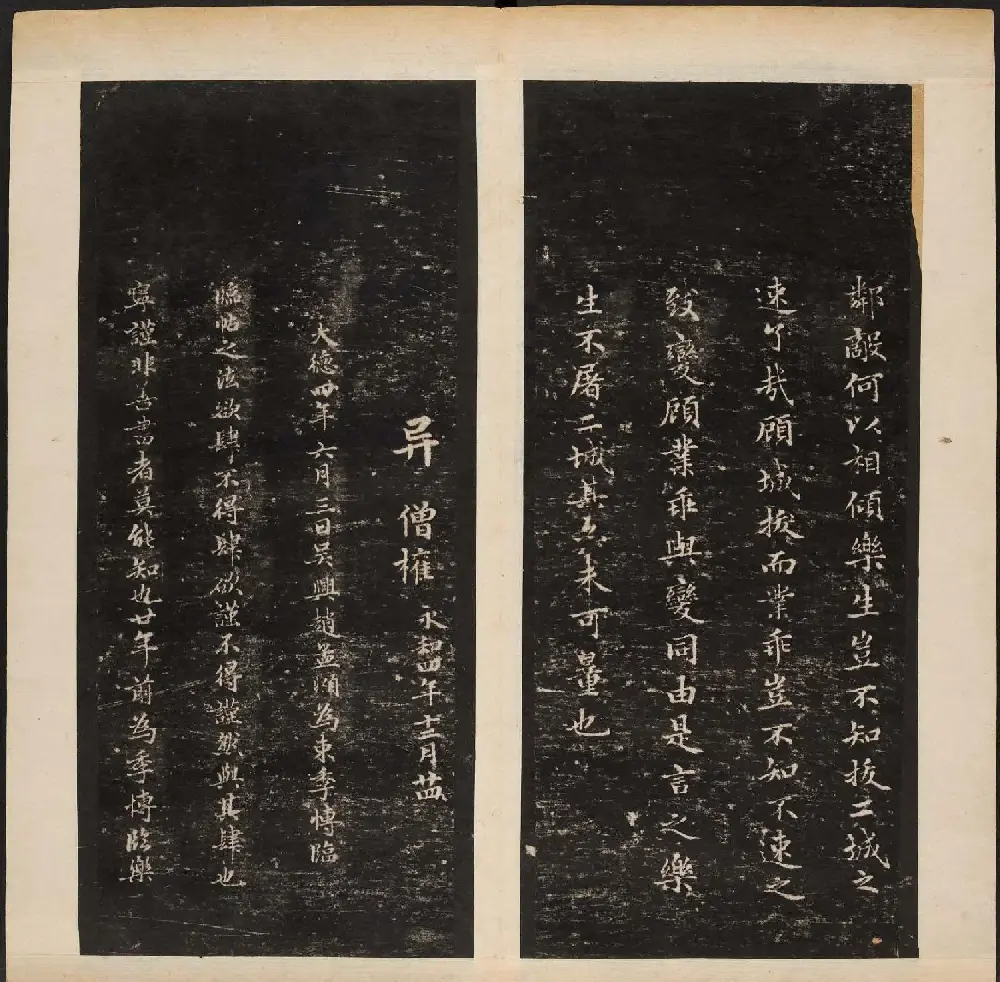 鄰敵何以相傾樂生豈不知拔二城之
速了哉顧城拔而業乖豈不知不速之
致變顧業乖與變同由是言之樂
生不屠二城其亦未可量也
异 僧權 永和四年十二月廿四日
大德四年六月三日吳興趙孟頫為束季博臨
臨帖之法欲肆不得肆欲謹不得謹然與其肆也
寧謹非善書者莫能知也廿年前為季博臨樂